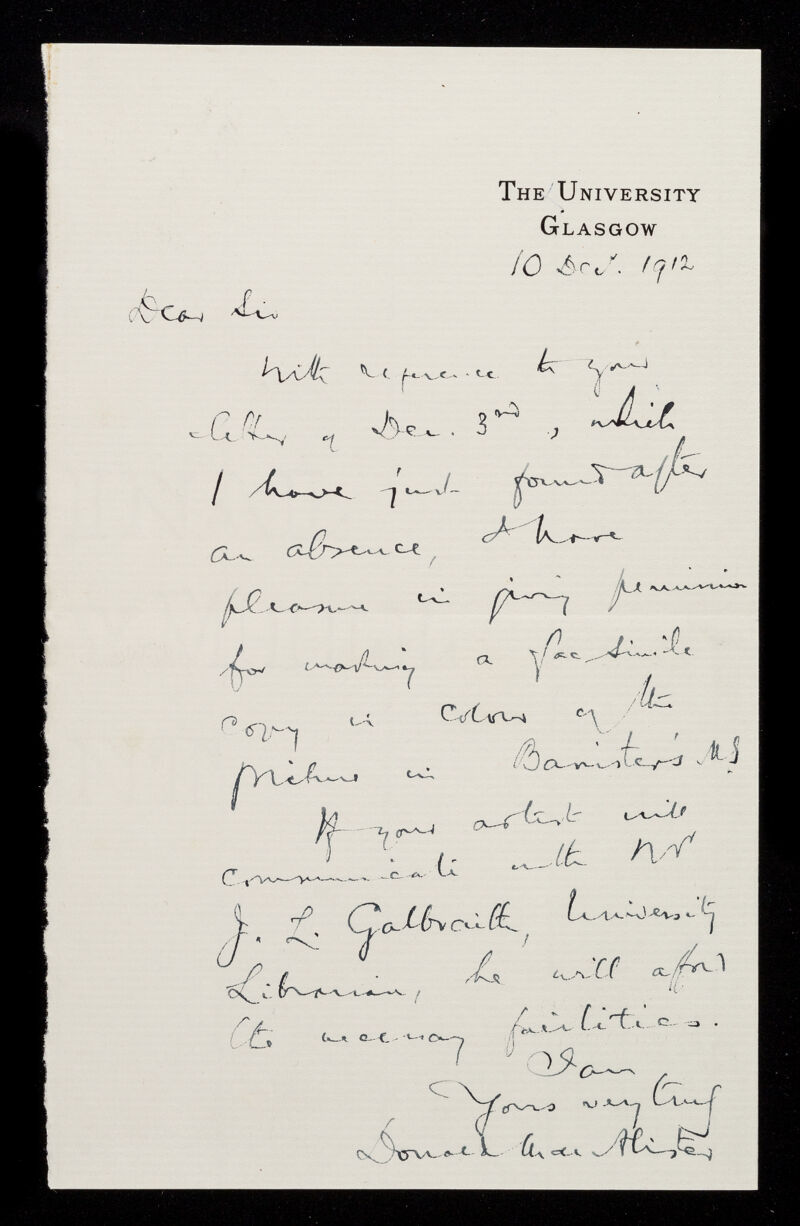 THE UNIVERSITY
GLASGOW
10 Decr. 1912
Dear Sir
With reference to your
letter of Dec. 3nd, which
I have just found after
an absence, I have
pleasure in giving permission
for making a facsimile
copy in colour of the
picture in Banister's MS.
If your artist will
communicate with Mr
J. L. Galbraith, University
Librarian, he will afford
the necessary facilities.
I am
Yours very truly
Donald MacAlister